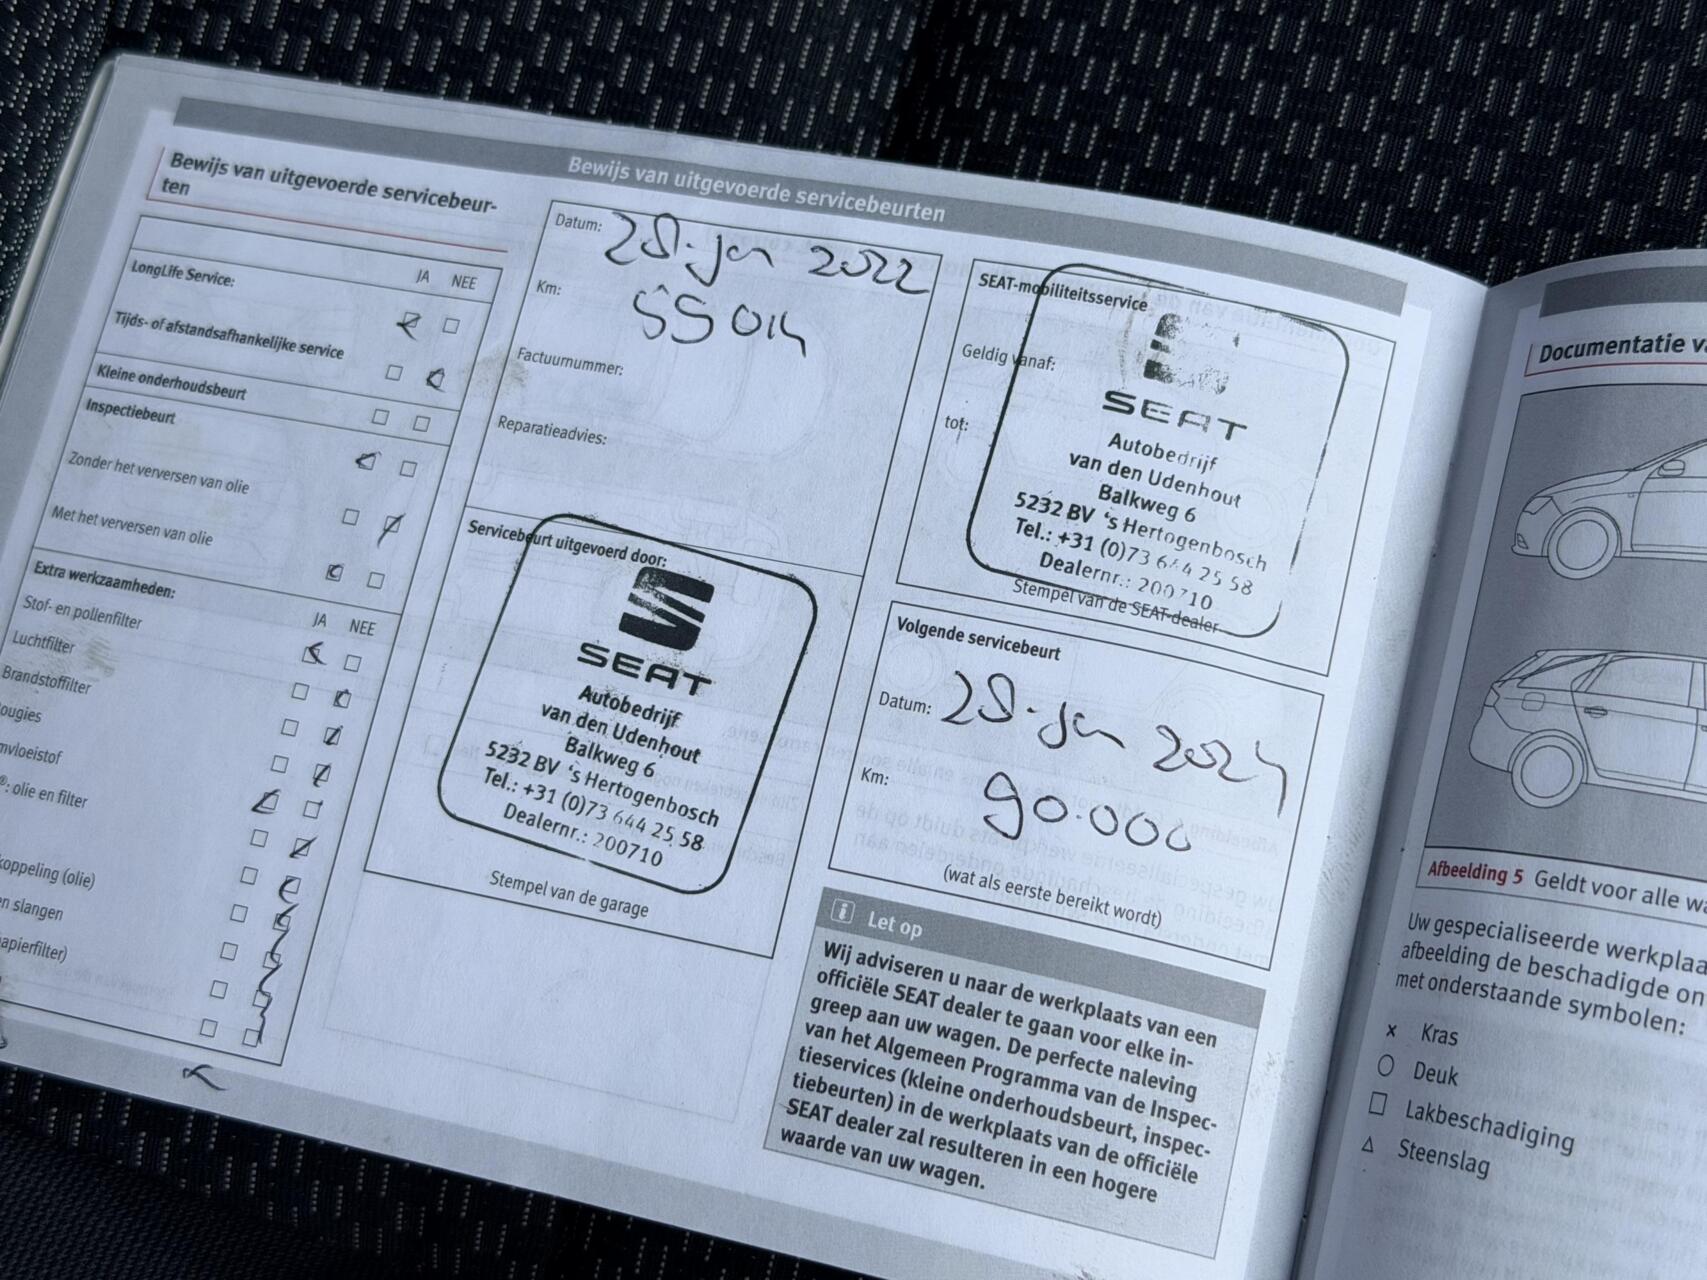 Bewijs van uitgevoerde servicebeurten
Bewijs van uitgevoerde servicebeur-
ten
JA NEE
LongLife Service:
Tijds- of afstandsafhankelijke service
Kleine onderhoudsbeurt
Inspectiebeurt
Zonder het verversen van olie
Met het verversen van olie
Extra werkzaamheden:
JA NEE
Stof- en pollenfilter
Luchtfilter
Brandstoffilter
ougies
mvloeistof
®: olie en filter
koppeling (olie)
en slangen
apierfilter)
Datum: 28-jan 2022
Km: 55014
Factuurnummer:
Reparatieadvies:
Servicebeurt uitgevoerd door:
SEAT
Autobedrijf
van den Udenhout
Balkweg 6
5232 BV 's Hertogenbosch
Tel.: +31 (0)73 644 25 58
Dealernr.: 200710
Stempel van de garage
SEAT-mobiliteitsservice
Geldig vanaf:
tot:
SEAT
Autobedrijf
van den Udenhout
Balkweg 6
5232 BV 's Hertogenbosch
Tel.: +31 (0)73 644 25 58
Dealernr.: 200710
Stempel van de SEAT-dealer
Volgende servicebeurt
Datum: 28-jan 2024
Km: 90.000
(wat als eerste bereikt wordt)
i Let op
Wij adviseren u naar de werkplaats van een
officiële SEAT dealer te gaan voor elke in-
greep aan uw wagen. De perfecte naleving
van het Algemeen Programma van de Inspec-
tieservices (kleine onderhoudsbeurt, inspec-
tiebeurten) in de werkplaats van de officiële
SEAT dealer zal resulteren in een hogere
waarde van uw wagen.
Documentatie va
Afbeelding 5 Geldt voor alle wa
Uw gespecialiseerde werkplaa
afbeelding de beschadigde on
met onderstaande symbolen:
× Kras
○ Deuk
□ Lakbeschadiging
△ Steenslag